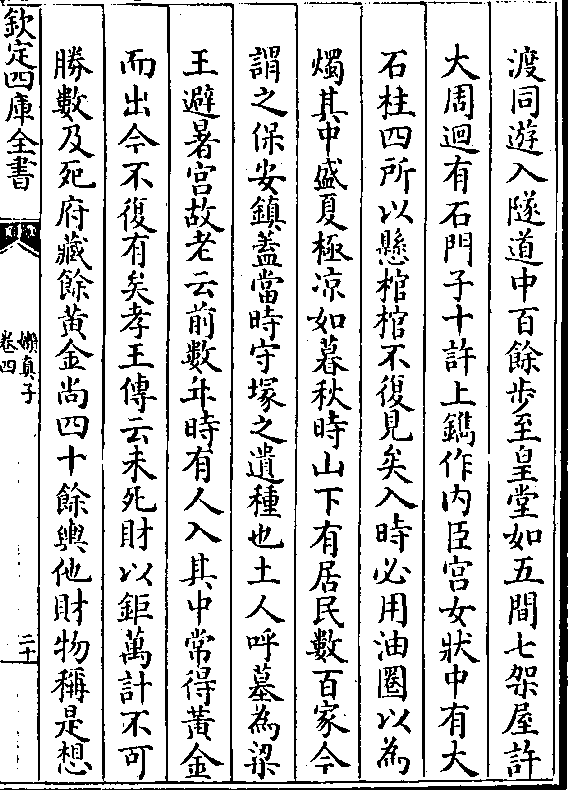 渡同遊入隧道中百餘步至皇堂如五間七架屋許
大周迴有石門子十許上鐫作内臣宫女狀中有大
石柱四所以懸棺棺不復見矣入時必用油圏以為
燭其中盛夏極凉如暮秋時山下有居民數百家今
謂之保安鎮蓋當時守塚之遺種也土人呼墓為梁
王避暑宫故老云前數年時有人入其中常得黄金
而出今不復有矣孝王傳云未死財以鉅萬計不可
勝數及死府藏餘黄金尚四十餘輿他財物稱是想
欽定四庫全書
嬾真子
卷四
二十